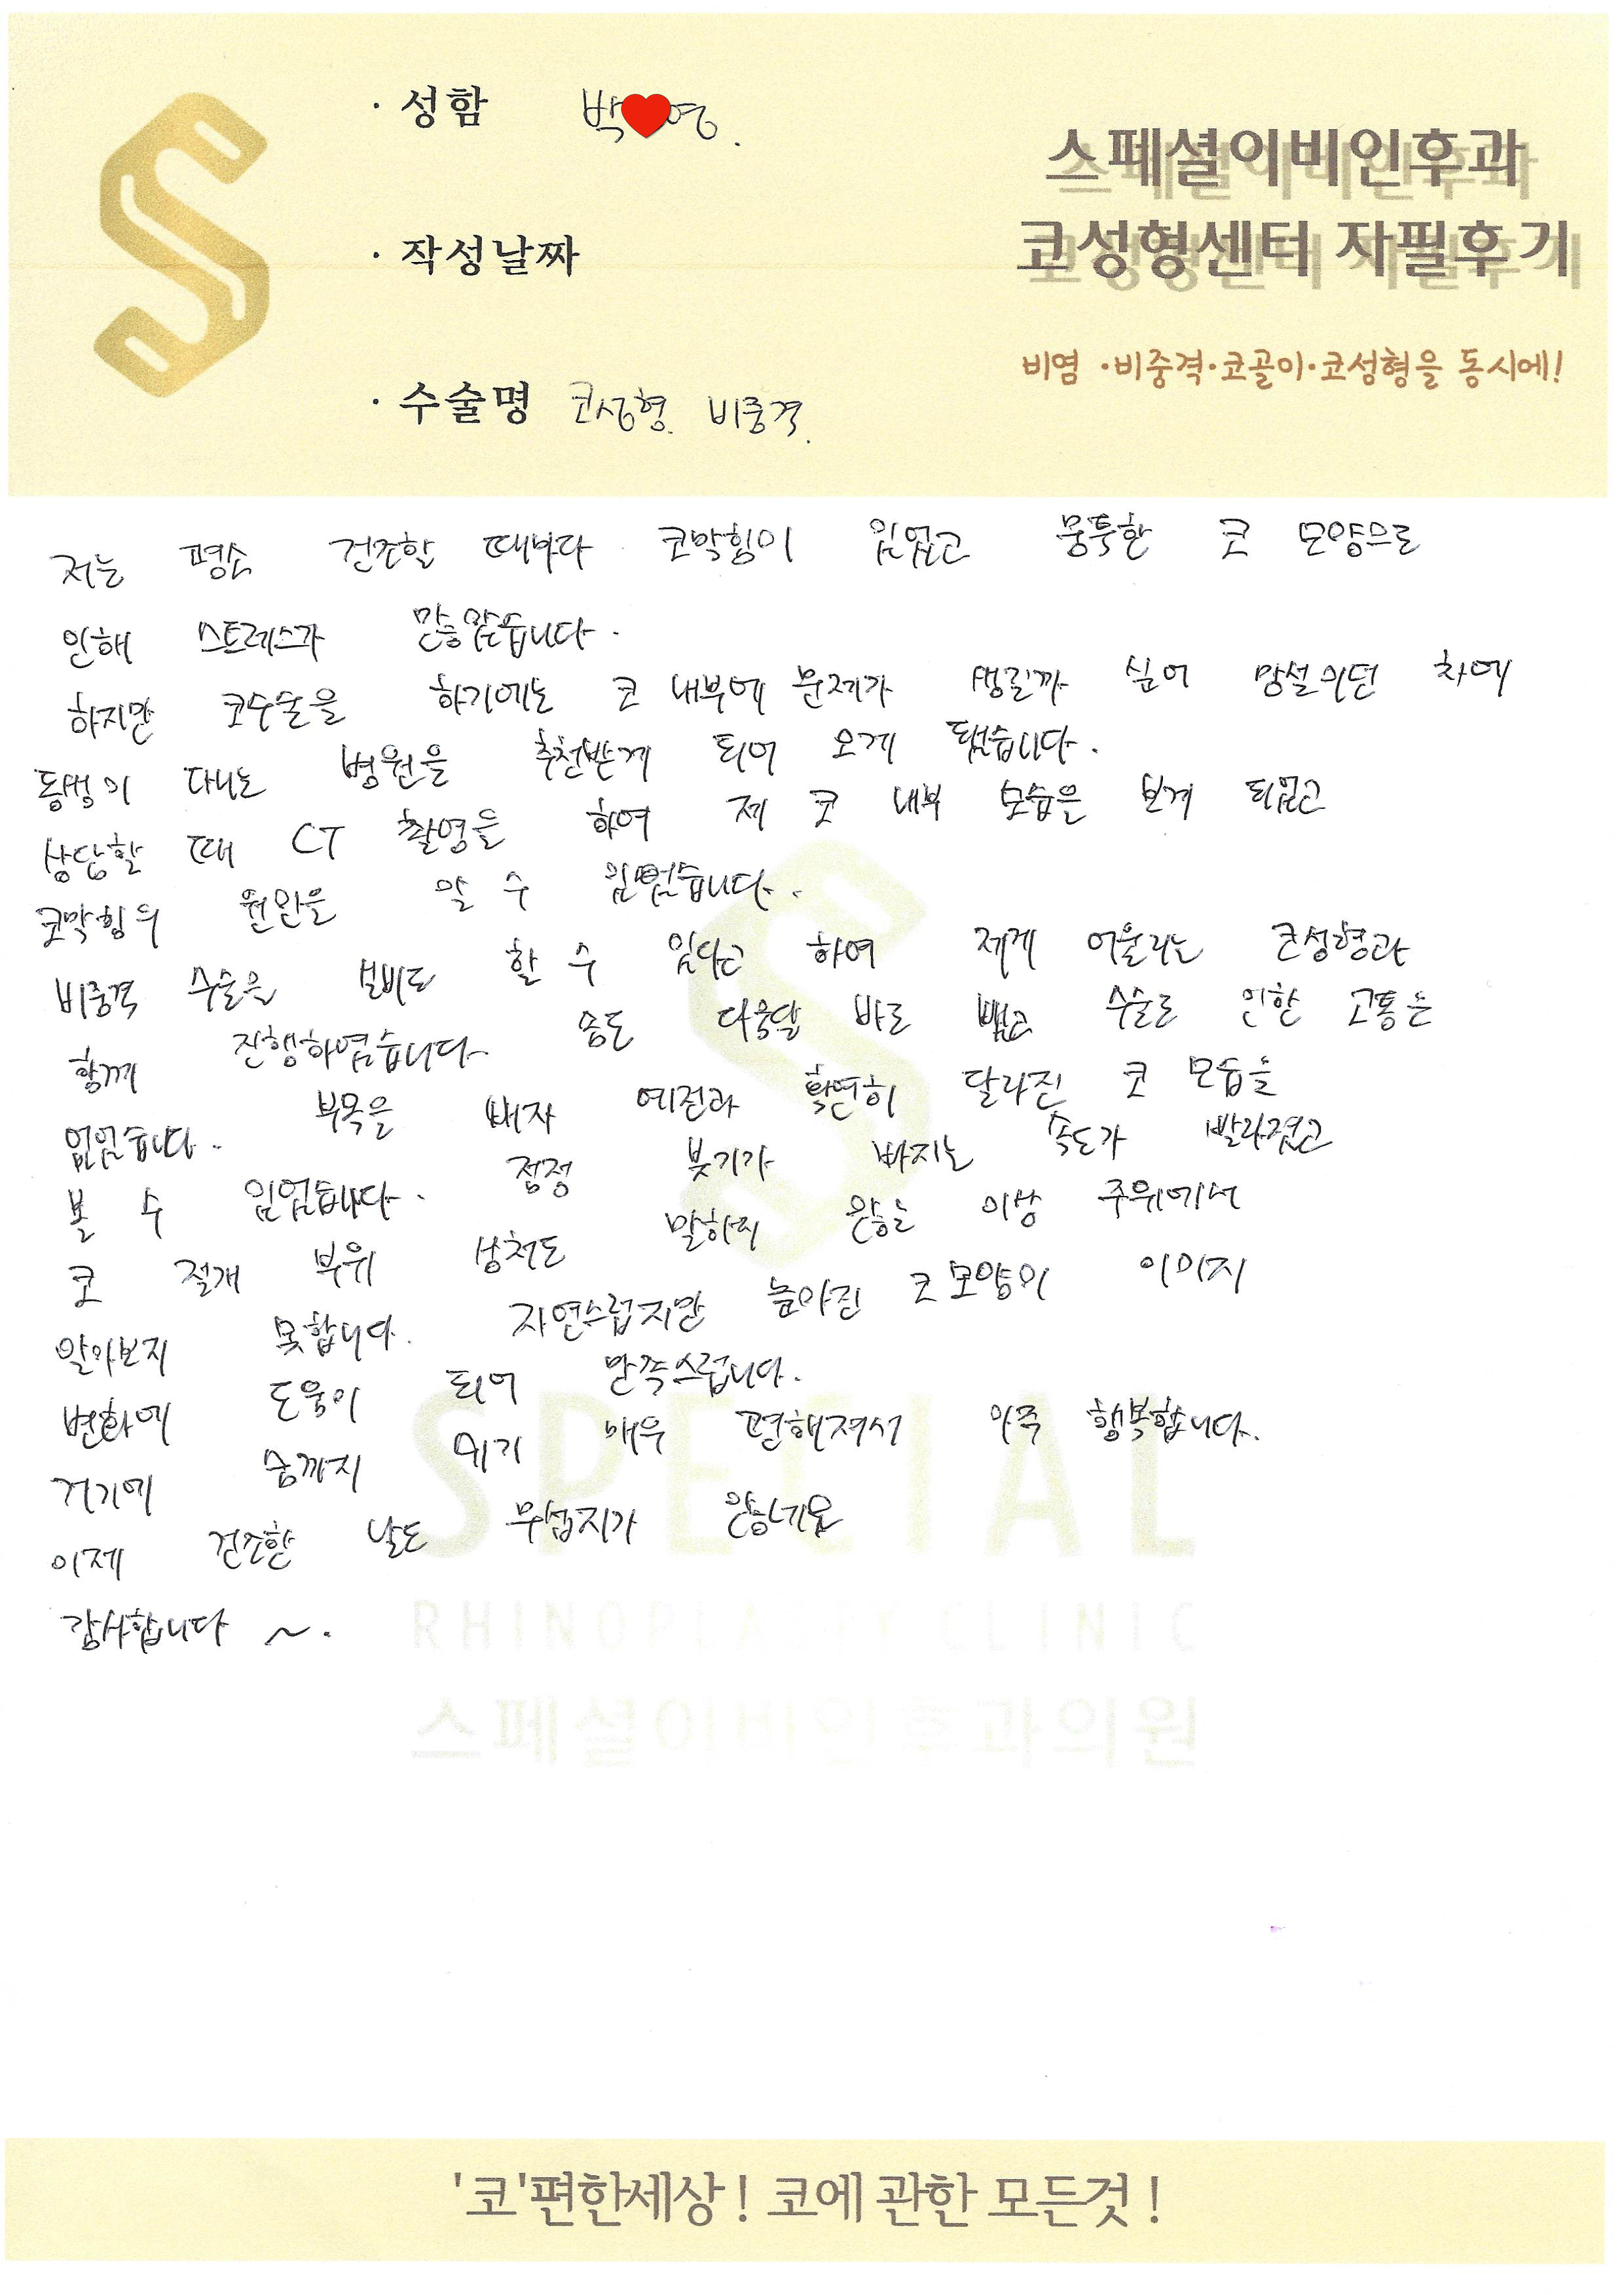 · 성함 박 영.
스페셜이비인후과
코성형센터 자필후기
· 작성날짜
비염 ·비중격·코골이·코성형을 동시에!
· 수술명 코성형. 비중격.
저는 평소 건조할 때마다 코막힘이 있었고 뭉툭한 코 모양으로
인해 스트레스가 많았습니다.
하지만 코수술을 하기에는 코 내부에 문제가 생길까 싶어 망설이던 차에
동생이 다니는 병원을 추천받게 되어 오게 됐습니다.
상담할 때 CT 촬영을 하여 제 코 내부 모습을 보게 되었고
코막힘의 원인을 알 수 있었습니다.
비중격 수술을 실비로 할 수 있다고 하여 제게 어울리는 코성형과
함께 진행하였습니다. 솜도 다음달 바로 뺐고 수술로 인한 고통은
없었습니다. 부목을 빼자 예전과 확연히 달라진 코 모습을
볼 수 있었습니다. 점점 붓기가 빠지는 속도가 빨라졌고
코 절개 부위 상처도 말하지 않는 이상 주위에서
알아보지 못합니다. 자연스럽지만 높아진 코 모양이 이미지
변화에 도움이 되어 만족스럽니다.
거기에 숨까지 쉬기 매우 편해져서 아주 행복합니다.
이제 건조한 날도 무섭지가 않네요
감사합니다 ~.
SPECIAL
RHINOPLASTY CLINIC
스페셜이비인후과의원
'코'편한세상! 코에 관한 모든것!